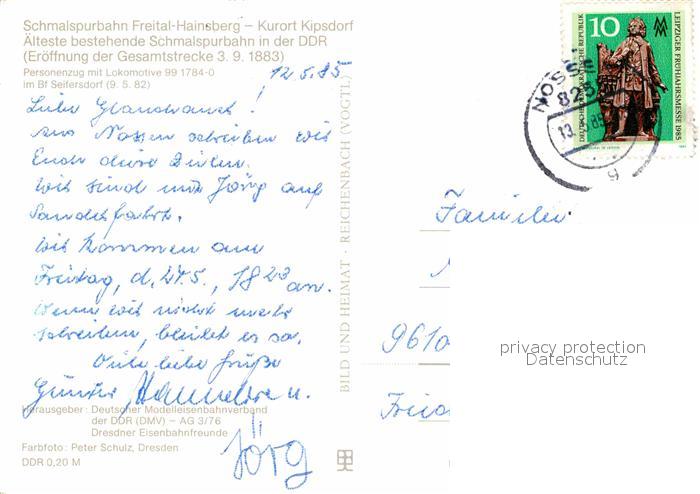 Schmalspurbahn Freital-Hainsberg – Kurort Kipsdorf
Älteste bestehende Schmalspurbahn in der DDR
(Eröffnung der Gesamtstrecke 3. 9. 1883)
Personenzug mit Lokomotive 99 1784-0
im Bf Seifersdorf (9. 5. 82)
12.5.85
Liebe
aus Nossen schreiben wir
Euch diese Zeilen.
Wir sind mit Jörg auf
fahrt.
Wir kommen am
Freitag, d. 24.5., 18 23 an.
Wenn wir nicht mehr
schreiben, bleibt es so.
Viele liebe Grüße
Günter, Hannelore u.
Jörg
Herausgeber: Deutscher Modelleisenbahnverband
der DDR (DMV) – AG 3/76
Dresdner Eisenbahnfreunde
Farbfoto: Peter Schulz, Dresden
DDR 0,20 M
BILD UND HEIMAT · REICHENBACH (VOGTL)
10
DEUTSCHE DEMOKRATISCHE REPUBLIK
LEIPZIGER FRÜHJAHRSMESSE 1985
NOSSEN
825
13
85
Familie
9610
privacy protection
Datenschutz